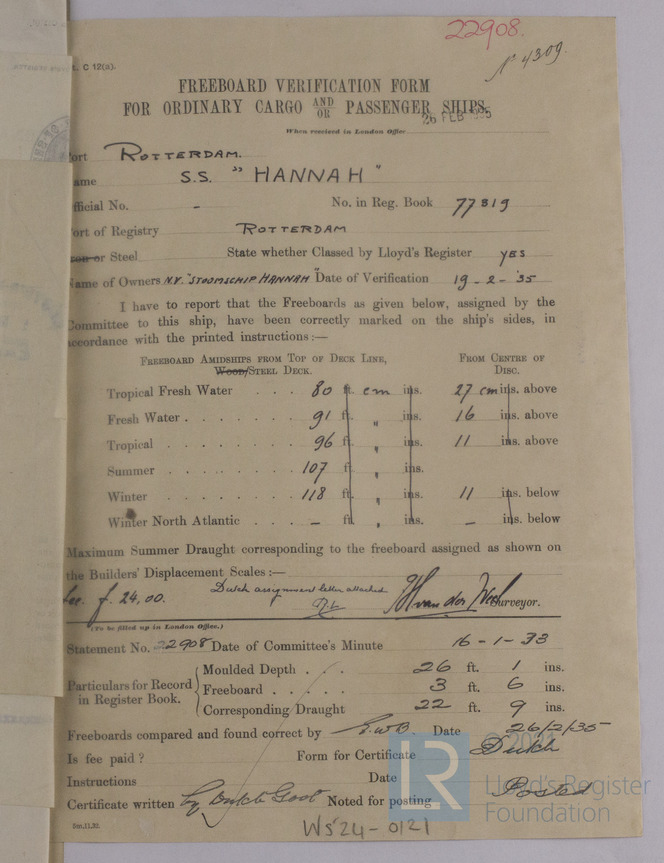 22908.
N 4309.
t. C 12(a).
FREEBOARD VERIFICATION FORM
FOR ORDINARY CARGO AND/OR PASSENGER SHIPS.
26 FEB 1935
When received in London Office
ort ROTTERDAM.
ame S.S. "HANNAH"
fficial No. - No. in Reg. Book 77819
ort of Registry ROTTERDAM
or Steel State whether Classed by Lloyd's Register YES
ame of Owners N.V. "STOOMSCHIP HANNAH" Date of Verification 19-2-'35
I have to report that the Freeboards as given below, assigned by the
ommittee to this ship, have been correctly marked on the ship's sides, in
ccordance with the printed instructions:—
FREEBOARD AMIDSHIPS FROM TOP OF DECK LINE, FROM CENTRE OF
WOOD/STEEL DECK. DISC.
Tropical Fresh Water . . . 80 ft. cm ins. 27 cm ins. above
Fresh Water . . . . . . 91 ft. " ins. 16 ins. above
Tropical . . . . . . . . 96 ft. " ins. 11 ins. above
Summer . . . . . . . 107 ft. " ins.
Winter . . . . . . . . 118 ft. " ins. 11 ins. below
Winter North Atlantic . . . - ft. " ins. - ins. below
Maximum Summer Draught corresponding to the freeboard assigned as shown on
the Builders' Displacement Scales:—
Dutch assignment letter attached
Fee. f. 24,00. Surveyor.
(To be filled up in London Office.)
Statement No. 22908 Date of Committee's Minute 16-1-33
Particulars for Record in Register Book.
Moulded Depth . . . 26 ft. 1 ins.
Freeboard . . . . . 3 ft. 6 ins.
Corresponding Draught 22 ft. 9 ins.
Freeboards compared and found correct by Date 26/2/35
Is fee paid? Form for Certificate Dutch
Instructions Date
Certificate written by Dutch Govt Noted for posting Posted
5m,11,30.
WS24-0121
© 2021
LR
Lloyd's Register
Foundation